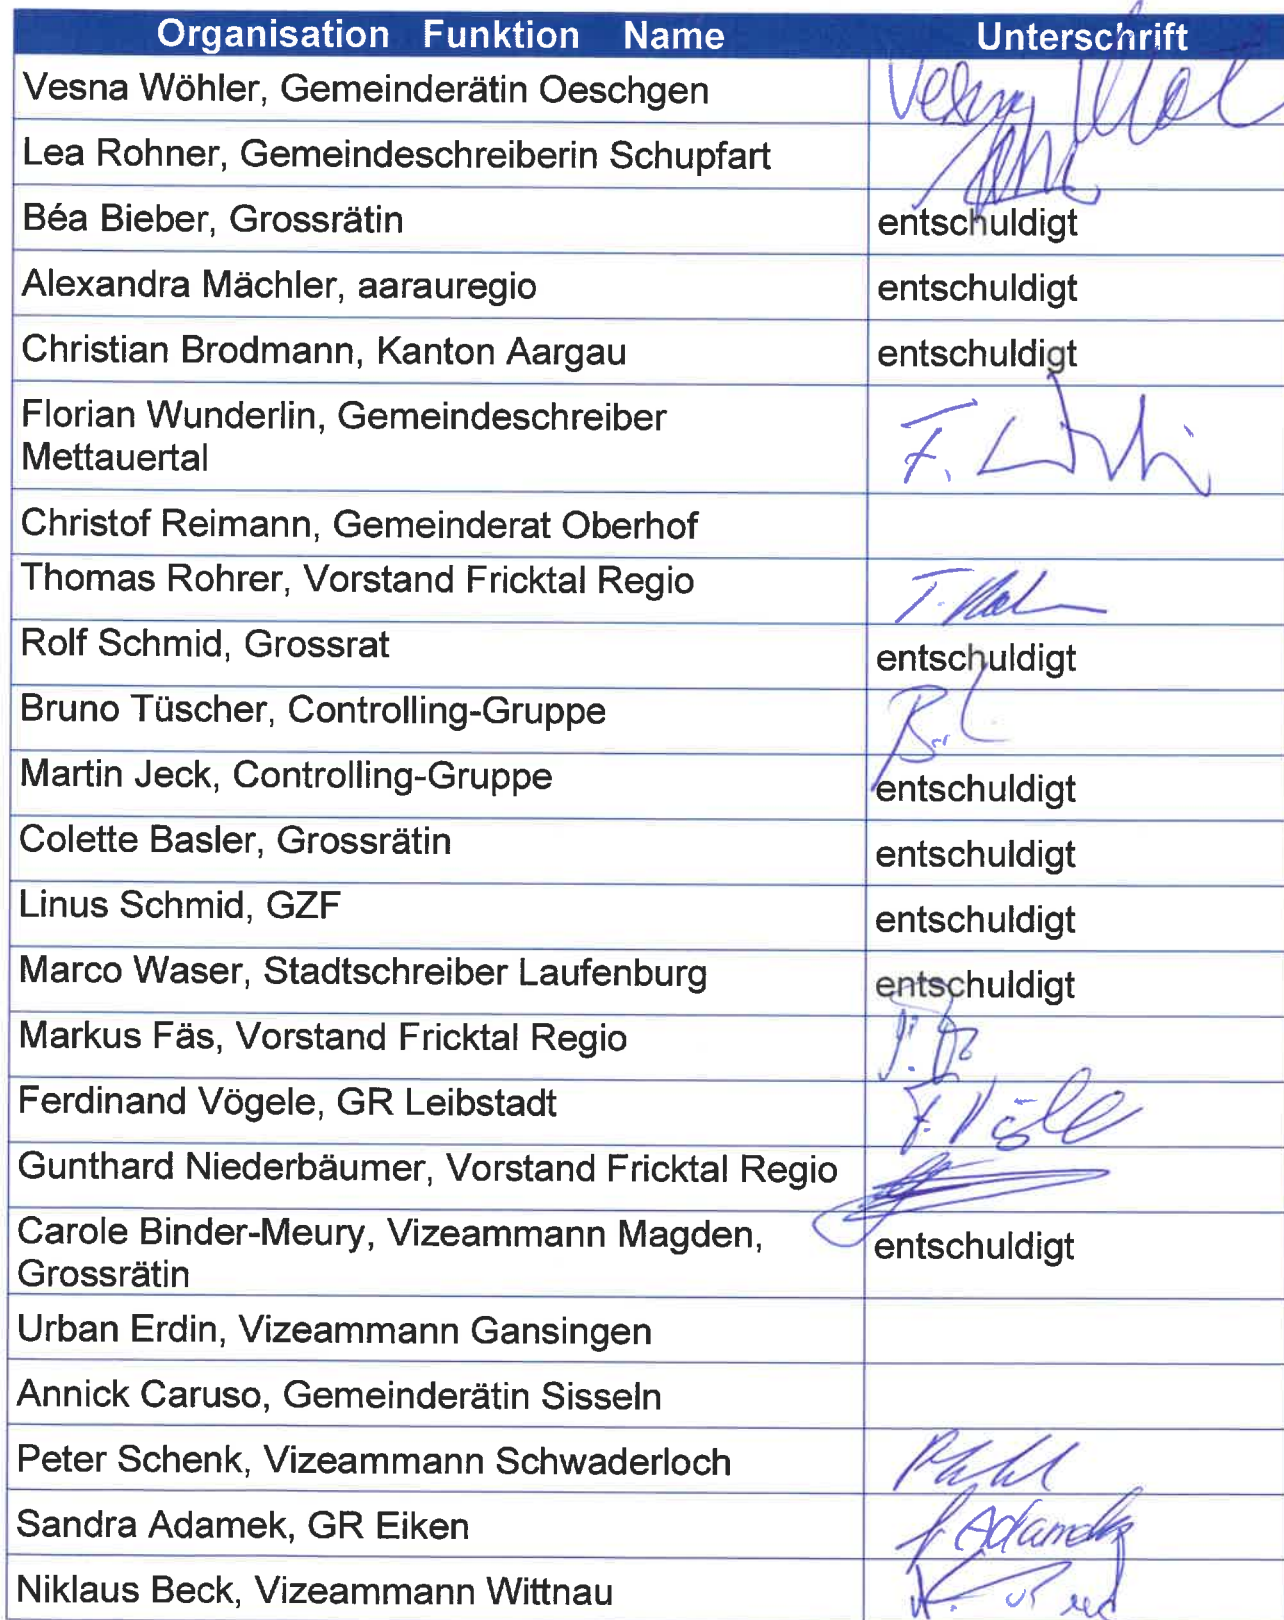 Organisation Funktion Name Unterschrift
Vesna Wöhler, Gemeinderätin Oeschgen
Lea Rohner, Gemeindeschreiberin Schupfart
Béa Bieber, Grossrätin entschuldigt
Alexandra Mächler, aarauregio entschuldigt
Christian Brodmann, Kanton Aargau entschuldigt
Florian Wunderlin, Gemeindeschreiber
Mettauertal F.
Christof Reimann, Gemeinderat Oberhof
Thomas Rohrer, Vorstand Fricktal Regio T.
Rolf Schmid, Grossrat entschuldigt
Bruno Tüscher, Controlling-Gruppe
Martin Jeck, Controlling-Gruppe entschuldigt
Colette Basler, Grossrätin entschuldigt
Linus Schmid, GZF entschuldigt
Marco Waser, Stadtschreiber Laufenburg entschuldigt
Markus Fäs, Vorstand Fricktal Regio
Ferdinand Vögele, GR Leibstadt F.
Gunthard Niederbäumer, Vorstand Fricktal Regio
Carole Binder-Meury, Vizeammann Magden,
Grossrätin entschuldigt
Urban Erdin, Vizeammann Gansingen
Annick Caruso, Gemeinderätin Sisseln
Peter Schenk, Vizeammann Schwaderloch
Sandra Adamek, GR Eiken Adamek
Niklaus Beck, Vizeammann Wittnau